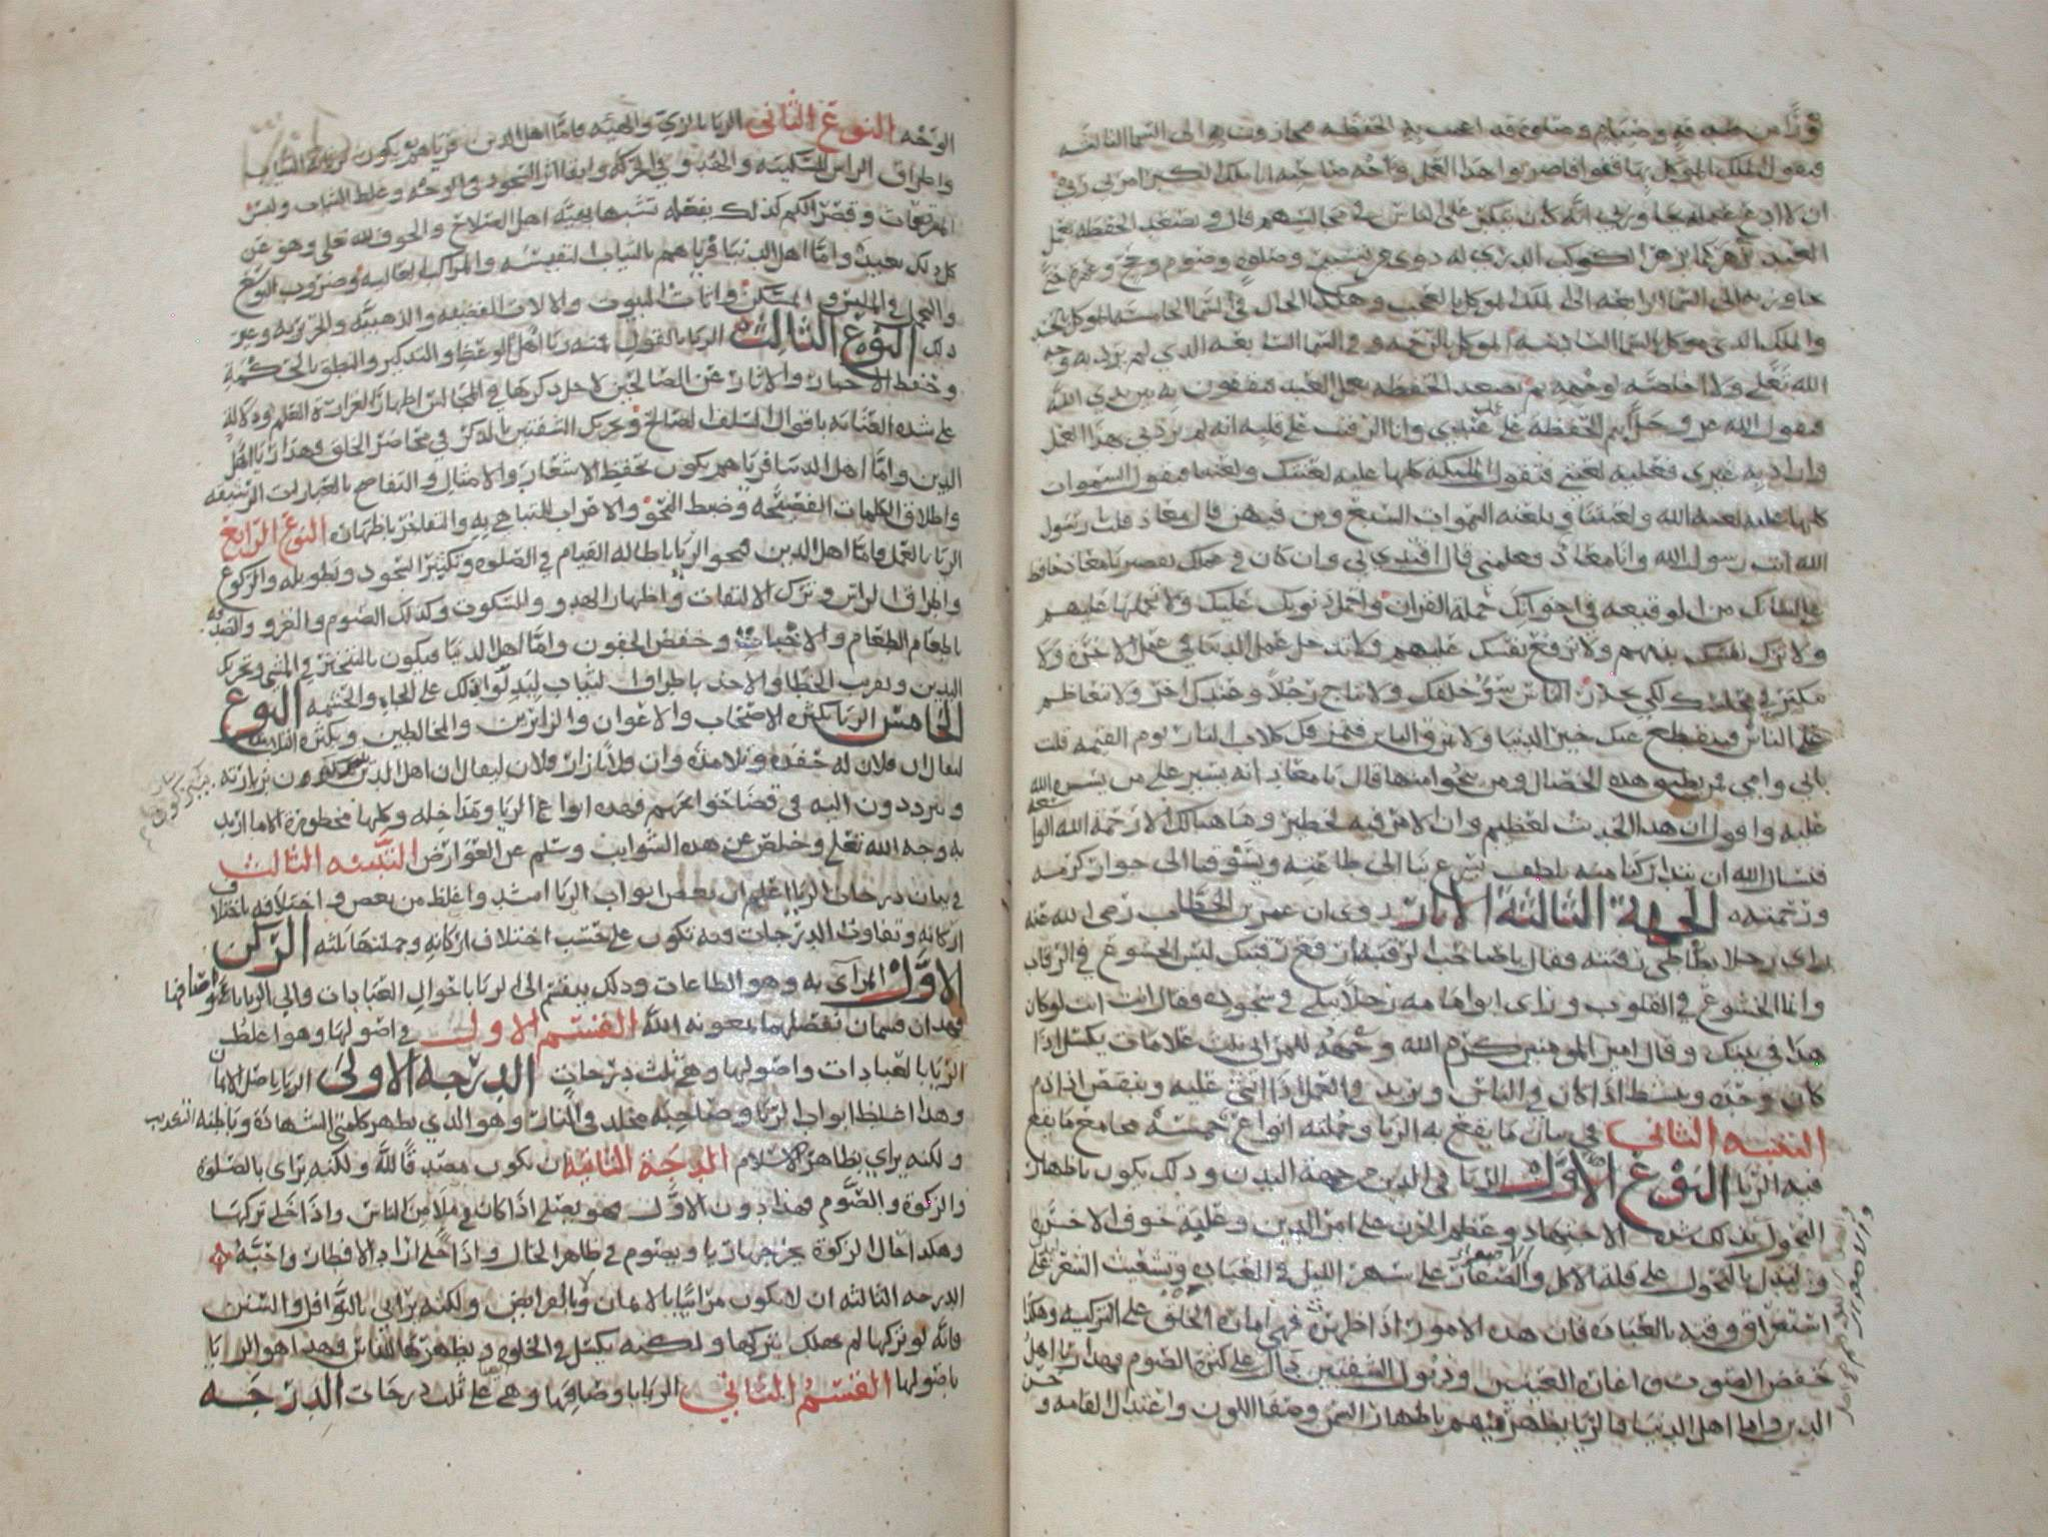 نورًا من صدقه وصيام وصلوة قد اعجب به الحفظه فيجاوزون به الى السما الثالثه
فيقول الملك الموكل بها قفوا فاضربوا بهذا العمل وجه صاحبه انا ملك الكبر امرني ربي
ان لا ادع عمله يجاوزني انه كان يتكبر على الناس في مجالسهم قال وتصعد الحفظه بعمل
العبد يزهر كما يزهر الكوكب الدري له دوي من تسبيح وصلوة وصوم وحج وعمرة حتى
يجاوزن به الى السما الرابعه الى الملك الموكل بالعجب وهكذا الحال في السما الخامسه الموكل بالحسد
والملك الذي موكل بالسما السادسه الموكل بالرحمه وفي السما السابعه الذي لم يرد به وجه
الله تعالى ولا خالصة لوجهه ثم تصعد الحفظه بعمل العبد فيقفون به بين يدي الله
فيقول الله عز وجل انتم الحفظه على عمل عبدي وانا الرقيب على قلبه انه لم يردني بهذا العمل
واراد به غيري فعليه لعنتي فتقول الملئكه كلها عليه لعنتك ولعنتنا فيقول السموات
كلها عليه لعنة الله ولعنتنا ويلعنه السموات السبع ومن فيهن قال معاذ قلت يرسول
الله انت رسول الله وانا معاذ وعلمني قال اقتدي بي وان كان في عملك تقصير يا معاذ حافظ
على لسانك من الوقيعه في اخوانك حملة القران واحمل ذنوبك عليك ولا تحملها عليهم
ولا تزك نفسك بذمهم ولا ترفع نفسك عليهم ولا تدخل عمل الدنيا في عمل الاخرة ولا
تتكبر في مجلسك لكي يحذر الناس سوء خلقك ولا تناج رجلاً وعندك اخر ولا تتعاظم
على الناس فينقطع عنك خير الدنيا ولا تمزق الناس فتمزقك كلاب النار يوم القيمه قلت
بابي وامي من يطيق هذه الخصال ومن ينجوا منها قال يا معاذ انه يسير على من يسره الله
عليه واقول ان هذا الحديث لعظيم وان الامر فيه لخطير وما هنالك الا رحمه الله الينا
فنسال الله ان يتداركنا منه بلطف يسرع بنا الى طاعته ويشوقنا الى جوار كرمه
ورحمته الجهة الثالثة الاثار روى ان عمر بن الخطاب رضى الله عنه
راى رجلا يطاطي رقبته فقال يا صاحب الرقبه ارفع رقبتك ليس الخشوع في الرقاب
وانما الخشوع في القلوب وراى ابو امامه رجلاً يبكي في سجوده فقال انت انت لو كان
هذا في بيتك وقال امير المومنين كرم الله وجهه للمرائي ثلث علامات يكسل اذا
كان وحده وينشط اذا كان في الناس ويزيد في العمل اذا اثني عليه وينقص اذا ذم
التنبيه الثاني في بيان ما يقع به الريا وجملته انواع خمسه مجامع ما يقع
فيه الريا النوع الاول الريا في الدين من جهة البدن وذلك يكون باظهار
النحول ليدل بذلك شدة الاجتهاد وعظم الحزن على امر الدين وغلبة خوف الاخرة
وليدل بالنحول على قلة الاكل والصفار على سهر الليل في العبادة وتشعيث الشعر على
استغراق وقته بالعبادة فان هذه الامور اذا ظهرت فهي امارة الخلق على التزكيه وهكذا
خفض الصوت واغارة العينين وذبول الشفتين يدل على كثرة الصوم فهذا ريا اهل
الدين واما اهل الدنيا فالريا يظهر فيهم باظهار السمن وصفا اللون واعتدال القامه وحسن
الوجه النوع الثاني الريا بالزي والهيئه فاما اهل الدين فرياهم يكون لرثاثة الثياب
واطراق الراس للسكينه والهدو في الحركه وابقا اثر السجود في الوجه وغلظ الثياب ولبس
المرقعات وقصر الكم كذلك يفعله تشبها بهيئه اهل الصلاح والخوف لله تعالى وهو عن
كل ذلك بعيد واما اهل الدنيا فرياهم بالثياب النفيسه والمراكب العاليه وضروب التوسع
والتجمل في الملبس والمسكن واثاث البيوت والالات الفضيه والذهبيه والحريريه وغير
ذلك النوع الثالث الريا بالقول فمنه ريا اهل الوعظ والتذكير والنطق بالحكمه
وحفظ الاخبار والاثار عن الصالحين لاجل ذكرها في المجالس اظهارًا لغزارة العلم ودلالة
على شدة العنايه باقوال السلف الصالح وتحريك الشفتين بالذكر في محاضر الخلق فهذا ريا اهل
الدين واما اهل الدنيا فرياهم يكون بحفظ الاشعار والامثال والتفاصح بالعبارات الرشيقه
واطلاق الكلمات الفصيحه وضبط النحو والاعراب للتباهي به والتفاخر باظهاره النوع الرابع
الريا بالعمل فاما اهل الدين فنحو الريا باطاله القيام في الصلوه وتكثير السجود وتطويله والركوع
واطراق الراس وترك الالتفات واظهار الهدو والسكوت وكذلك الصوم والغزو والصدقه
باطعام الطعام والاخبات وخفض الجفون واما اهل الدنيا فيكون بالتبختر في المشي وتحريك
اليدين وتقريب الخطا والاخذ باطراف الثياب ليدلوا بذلك على الجاه والحشمه النوع
الخامس الريا بكثره الاصحاب والاعوان والزائرين والمخالطين وبكثره التلامذه
ليقال ان فلان له حفده وتلامذه وان فلانا زار فلان ليقال ان اهل الدين يتبركون بزيارته
ويترددون اليه في قضا حوائجهم فهذه انواع الريا ومداخله وكلها محظورة الا ما اريد
به وجه الله تعالى وخلص عن هذه الشوايب وسلم عن العوارض التنبيه الثالث
في بيان درجات الريا اعلم ان بعض ابواب الريا اشد واغلظ من بعض واختلافه باختلاف
اركانه وتفاوت الدرجات فيه تكون على حسب اختلاف اركانه وجملتها ثلثه الركن
الاول المرآى به وهو الطاعات وذلك ينقسم الى الريا باحوال العبادات والى الريا باوصافها
فهذان قسمان نفصلهما بمعونه الله القسم الاول في اصولها وهو اغلظ
الريا بالعبادات واصولها وهي ثلث درجات الدرجه الاولى الريا باصل الايمان
وهذا اغلظ ابواب الريا وصاحبه مخلد في النار وهو الذي يظهر كلمتي الشهادة وباطنه التكذيب
ولكنه يراي بظاهر الاسلام الدرجة الثانيه ان يكون مصدقًا لله ولكنه يراى بالصلوة
والزكوة والصوم فهذا دون الاول فهو يصلي اذا كان في ملا من الناس واذا خلي تركها
وهكذا حال الزكوة يخرجها ريا ويصوم في ظاهر الحال واذا خلي اراد الافطار واحبه
الدرجه الثالثه ان لا يكون مرائيا بالايمان ولا بالفرائض ولكنه يرائي بالنوافل والسنن
فانه لو تركها لم يهلك بتركها ولكنه يكسل في الخلوه ويظهرها للناس فهذا هو الريا
باصولها القسم الثاني الريا باوصافها وهي على ثلث درجات الدرجه